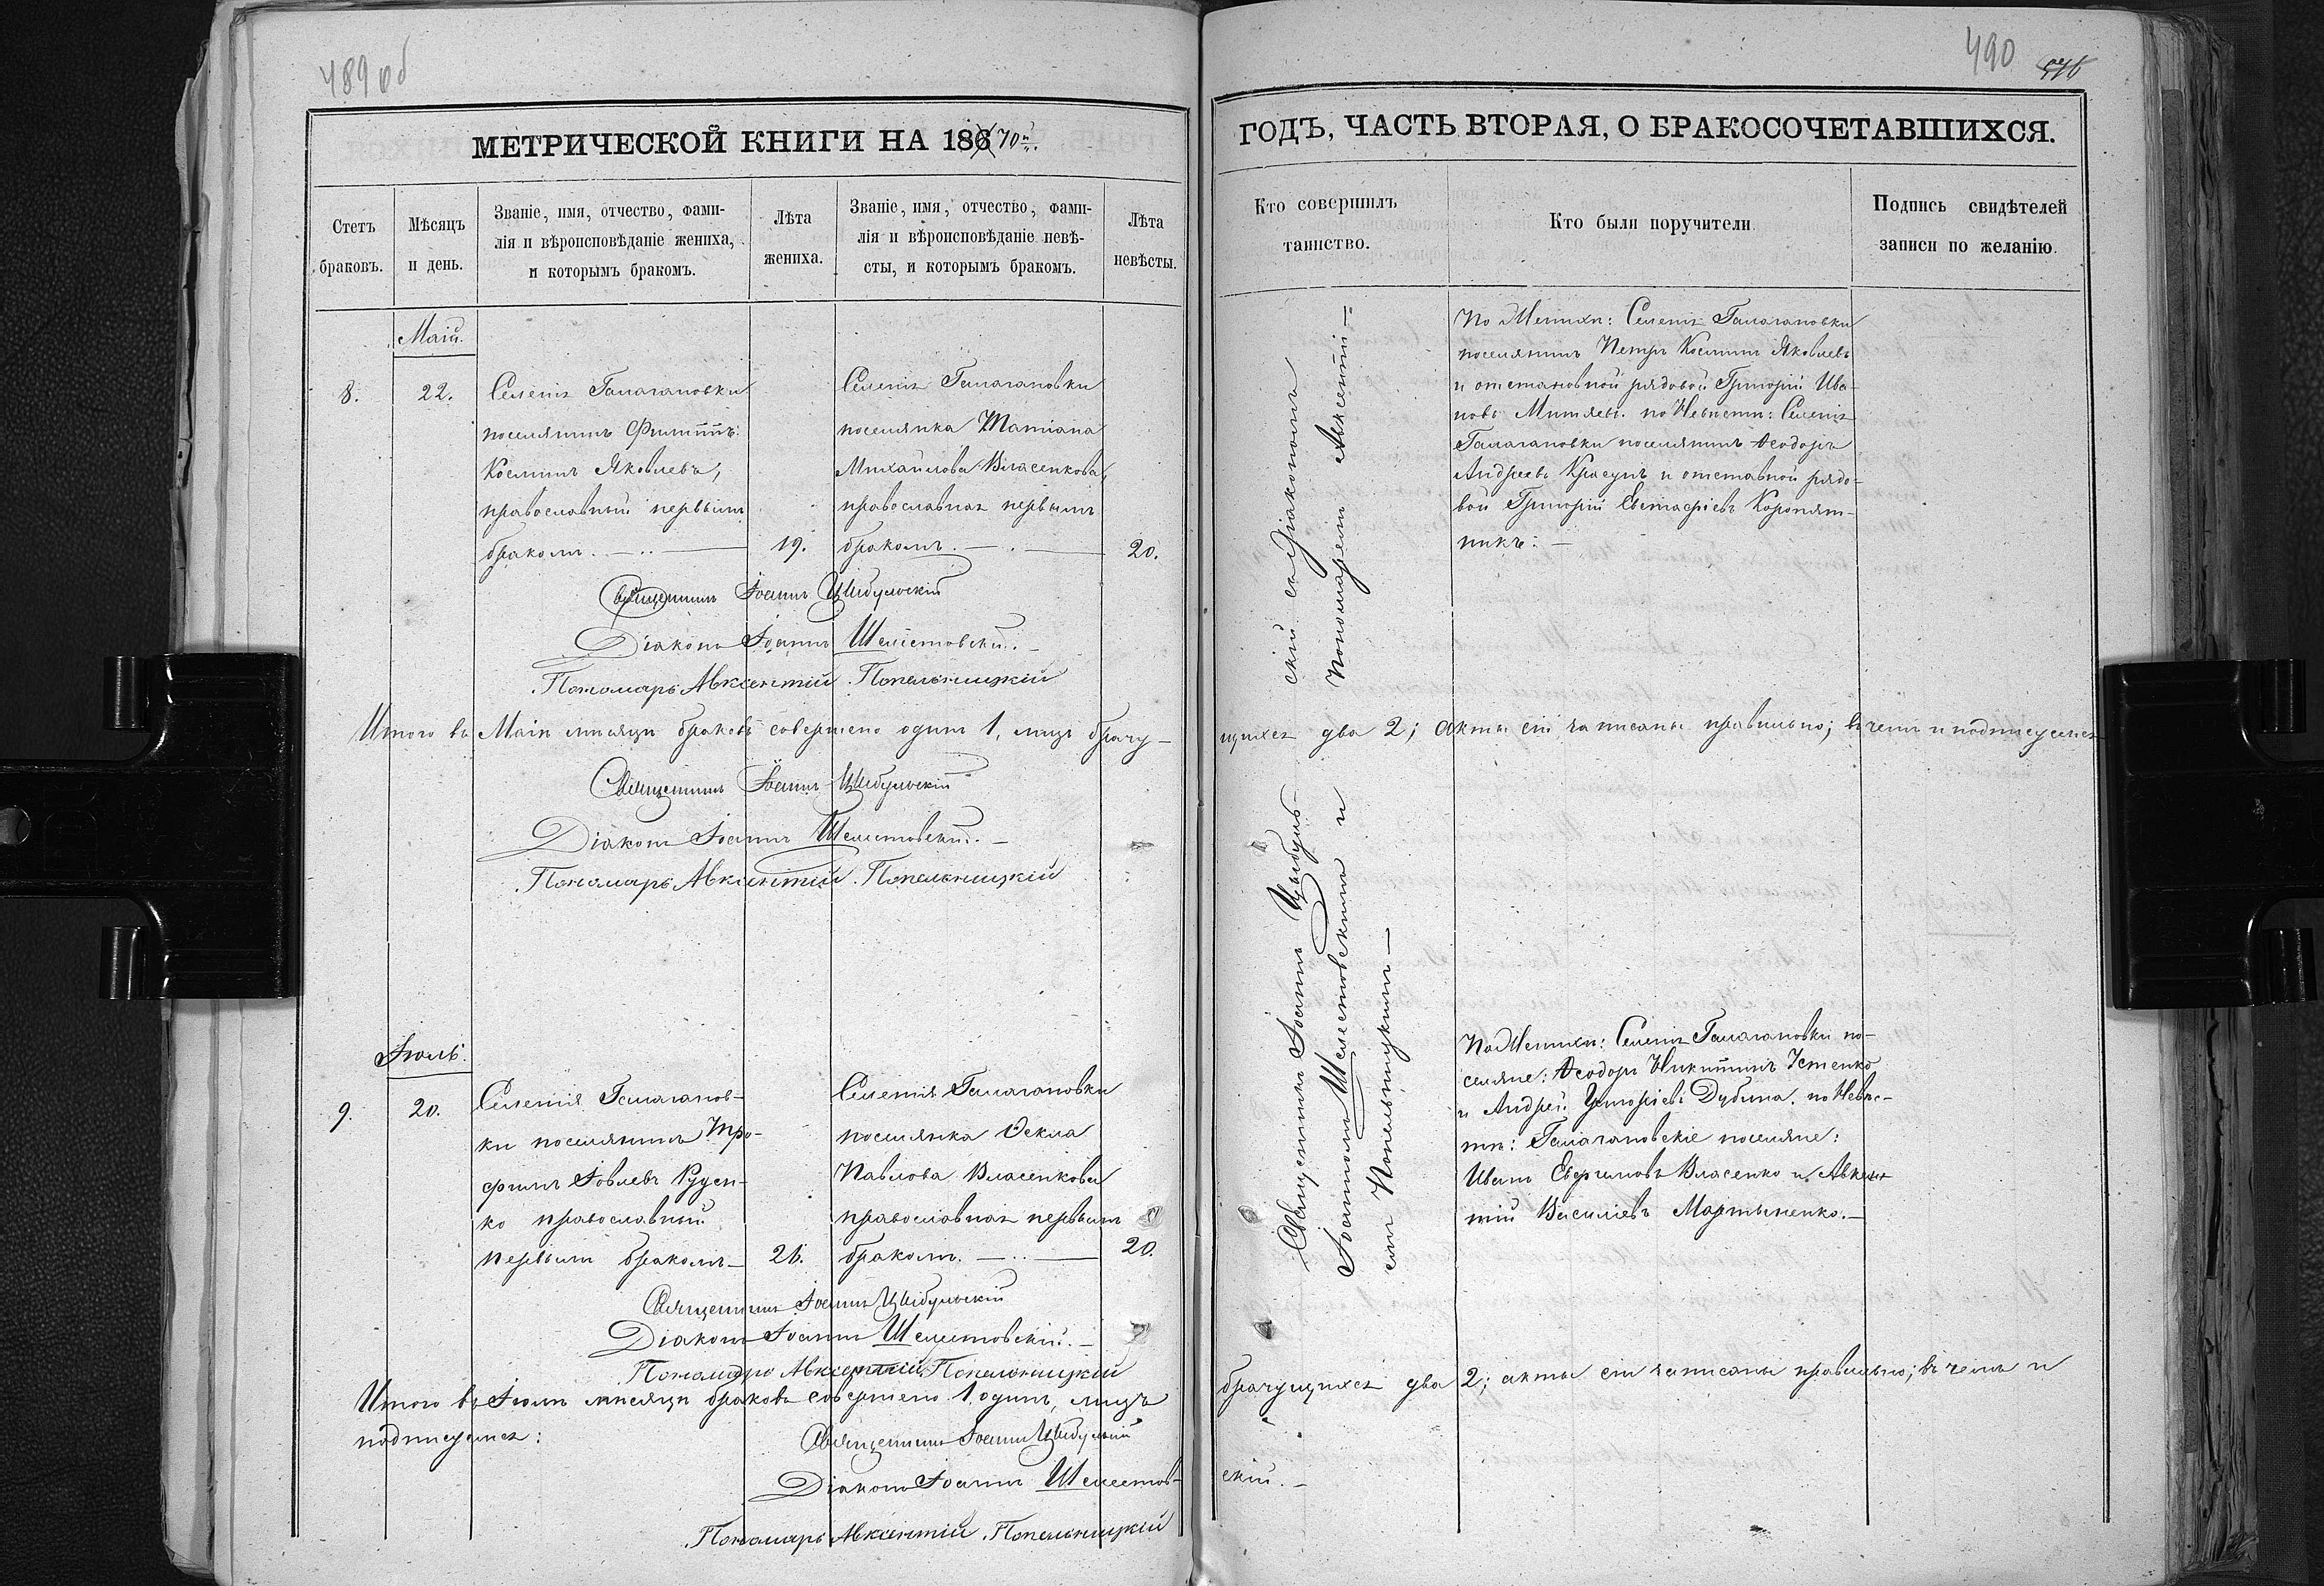 489 об
МЕТРИЧЕСКОЙ КНИГИ НА 186 70й.
Счетъ браковъ.
Мѣсяцъ и день.
Званіе, имя, отчество, фами-
лія и вѣроисповѣданіе жениха,
и которымъ бракомъ.
Лѣта
жениха.
Званіе, имя, отчество, фами-
лія и вѣроисповѣданіе невѣ-
сты, и которымъ бракомъ.
Лѣта
невѣсты.
Маій.
8.
22.
Селенія Галагановки
поселянинъ Филиппъ
Косминъ Яковлевъ,
православный первымъ
бракомъ.
19.
Селенія Галагановки
поселянка Татіана
Михайлова Власенкова,
православная первымъ
бракомъ.
20.
Священникъ Іоаннъ Цыбульскій
Діаконъ Іоаннъ Шелестовскій.
Пономарь Авксентій Попельницкій
Итого въ Маіи мѣсяцѣ браковъ совершено одинъ 1, лицъ брачу-
Священникъ Іоаннъ Цыбульскій
Діаконъ Іоаннъ Шелестовскій.
Пономарь Авксентій Попельницкій
Іюль.
9.
20.
Селенія Галаганов-
ки поселянинъ Тро-
фимъ Іовлевъ Руден-
ко православный
первымъ бракомъ
21.
Селенія Галагановки
поселянка Ѳекла
Павлова Власенкова
православная первымъ
бракомъ.
20.
Священникъ Іоаннъ Цыбульскій
Діаконъ Іоаннъ Шелестовскій.
Пономарь Авксентій Попельницкій
Итого въ Іюлѣ мѣсяцѣ браковъ совершено 1, одинъ, лицъ
подписуемся:
Священникъ Іоаннъ Цыбульскій
Діаконъ Іоаннъ Шелестов-
Пономарь Авксентій Попельницкій
490
ГОДЪ, ЧАСТЬ ВТОРАЯ, О БРАКОСОЧЕТАВШИХСЯ.
Кто совершилъ
таинство.
Кто были поручители
Подпись свидѣтелей
записи по желанію.
Священникъ Іоаннъ Цыбуль-
скій съ Діакономъ
Іоанномъ Шелестовскимъ и
Пономаремъ Авксентій-
емъ Попельницкимъ
По Женихѣ: Селенія Галагановки
поселянинъ Петръ Косминъ Яковлевъ
и отставной рядовой Григорій Ива-
новъ Митяевъ. по Невѣстѣ: Селенія
Галагановки поселянинъ Ѳеодоръ
Андреевъ Красунъ и отставной рядо-
вой Григорій Евстафіевъ Коропят-
никъ:
щихся два 2; акты сіи записаны правильно; въ чемъ и подписуемся
По Женихѣ: Селенія Галагановки по-
селяне: Ѳеодоръ Никитинъ Устенко
и Андрей Григоріевъ Дубина. по Невѣс-
тѣ: Галагановскіе поселяне:
Иванъ Евфимовъ Власенко и Авксен-
тій Василіевъ Мартыненко.
брачущихся два 2; акты сіи записаны правильно; въ чемъ и
скій.